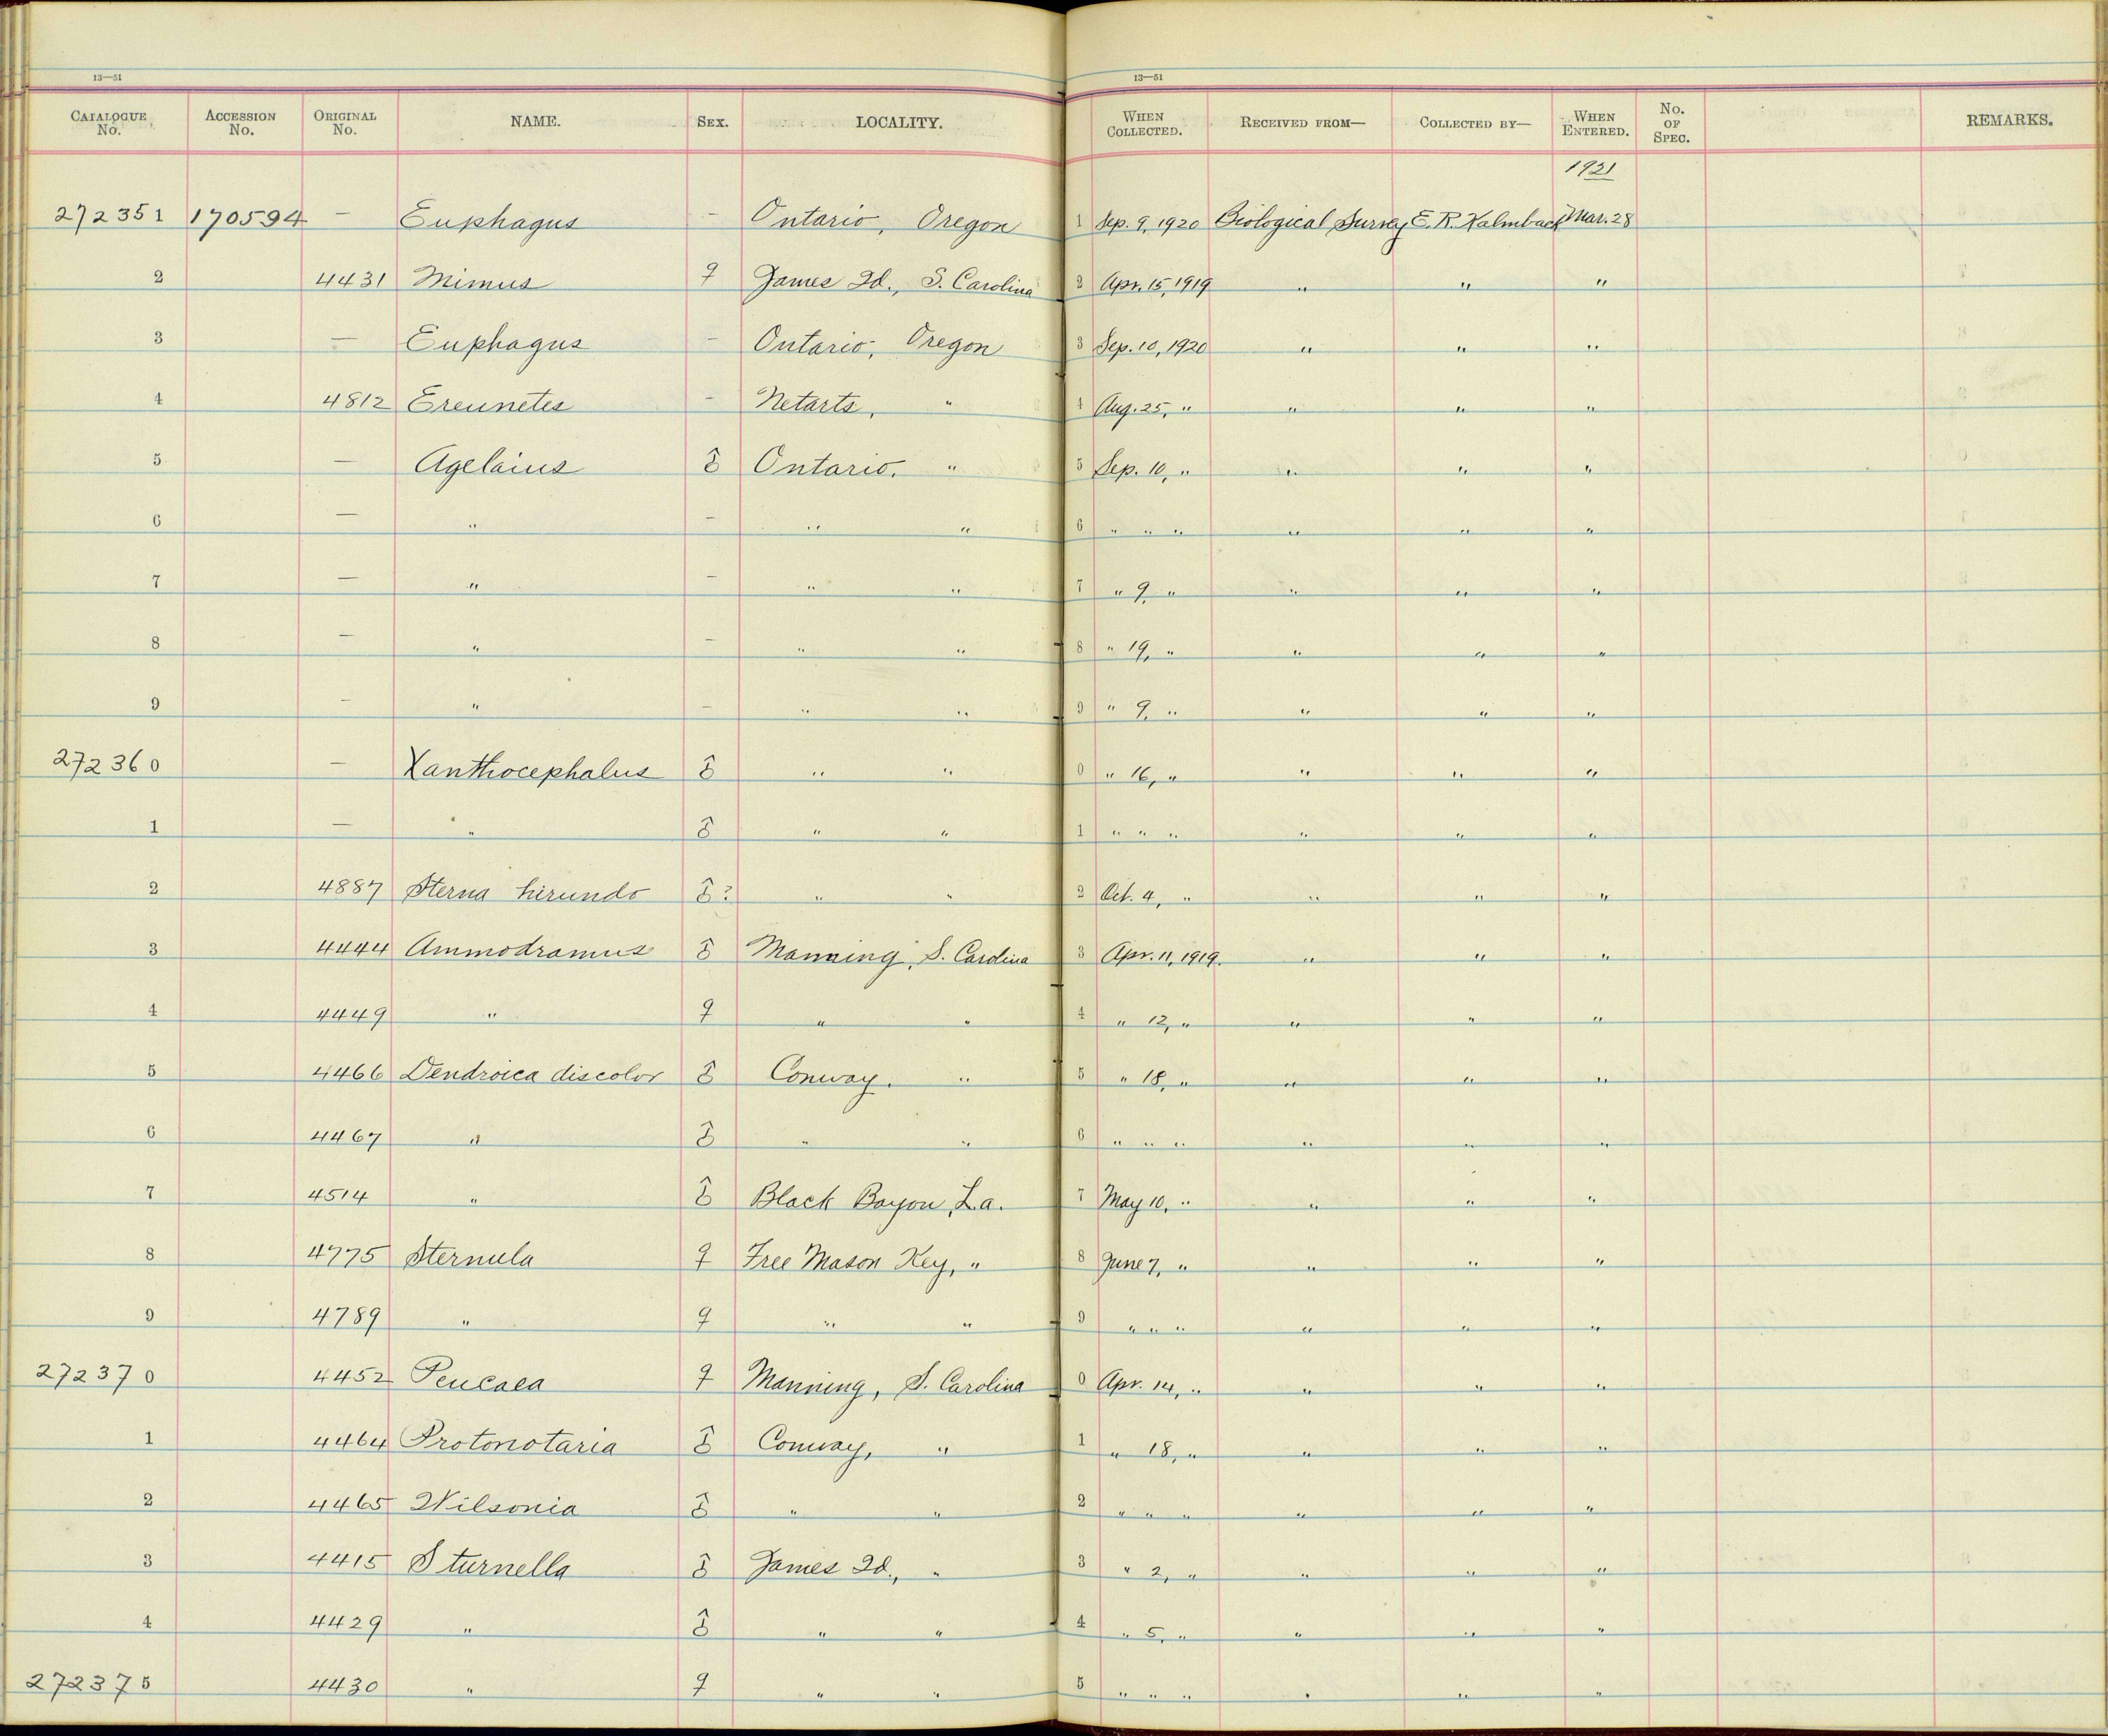 13—51 13—51
CATALOGUE No. ACCESSION No. ORIGINAL No. NAME. SEX. LOCALITY. WHEN COLLECTED. RECEIVED FROM— COLLECTED BY— WHEN ENTERED. No. OF SPEC. REMARKS.
1921
272351 170594 — Euphagus — Ontario, Oregon 1 Sep. 9, 1920 Biological Survey E. R. Kalmbach Mar. 28
2 4431 Mimus ♀ James Id., S. Carolina 2 Apr. 15, 1919 " " "
3 — Euphagus — Ontario, Oregon 3 Sep. 10, 1920 " " "
4 4812 Ereunetes — Netarts, " 4 Aug. 25, " " " "
5 — Agelaius ♂ Ontario, " 5 Sep. 10, " " " "
6 — " — " " 6 " " " " " "
7 — " — " " 7 " 9, " " " "
8 — " — " " 8 " 19, " " " "
9 — " — " " 9 " 9, " " " "
272360 — Xanthocephalus ♂ " " 0 " 16, " " " "
1 — " ♂ " " 1 " " " " " "
2 4887 Sterna hirundo ♂? " " 2 Oct. 4, " " " "
3 4444 Ammodramus ♂ Manning, S. Carolina 3 Apr. 11, 1919. " " "
4 4449 " ♀ " " 4 " 12, " " " "
5 4466 Dendroica discolor ♂ Conway, " 5 " 18, " " " "
6 4467 " ♂ " " 6 " " " " " "
7 4514 " ♂ Black Bayou, La. 7 May 10, " " " "
8 4775 Sternula ♀ Free Mason Key, " 8 June 7, " " " "
9 4789 " ♀ " " 9 " " " " " "
272370 4452 Peucaea ♀ Manning, S. Carolina 0 Apr. 14, " " " "
1 4464 Protonotaria ♂ Conway, " 1 " 18, " " " "
2 4465 Wilsonia ♂ " " 2 " " " " " "
3 4415 Sturnella ♂ James Id., " 3 " 2, " " " "
4 4429 " ♂ " " 4 " 5, " " " "
272375 4430 " ♀ " " 5 " " " " " "